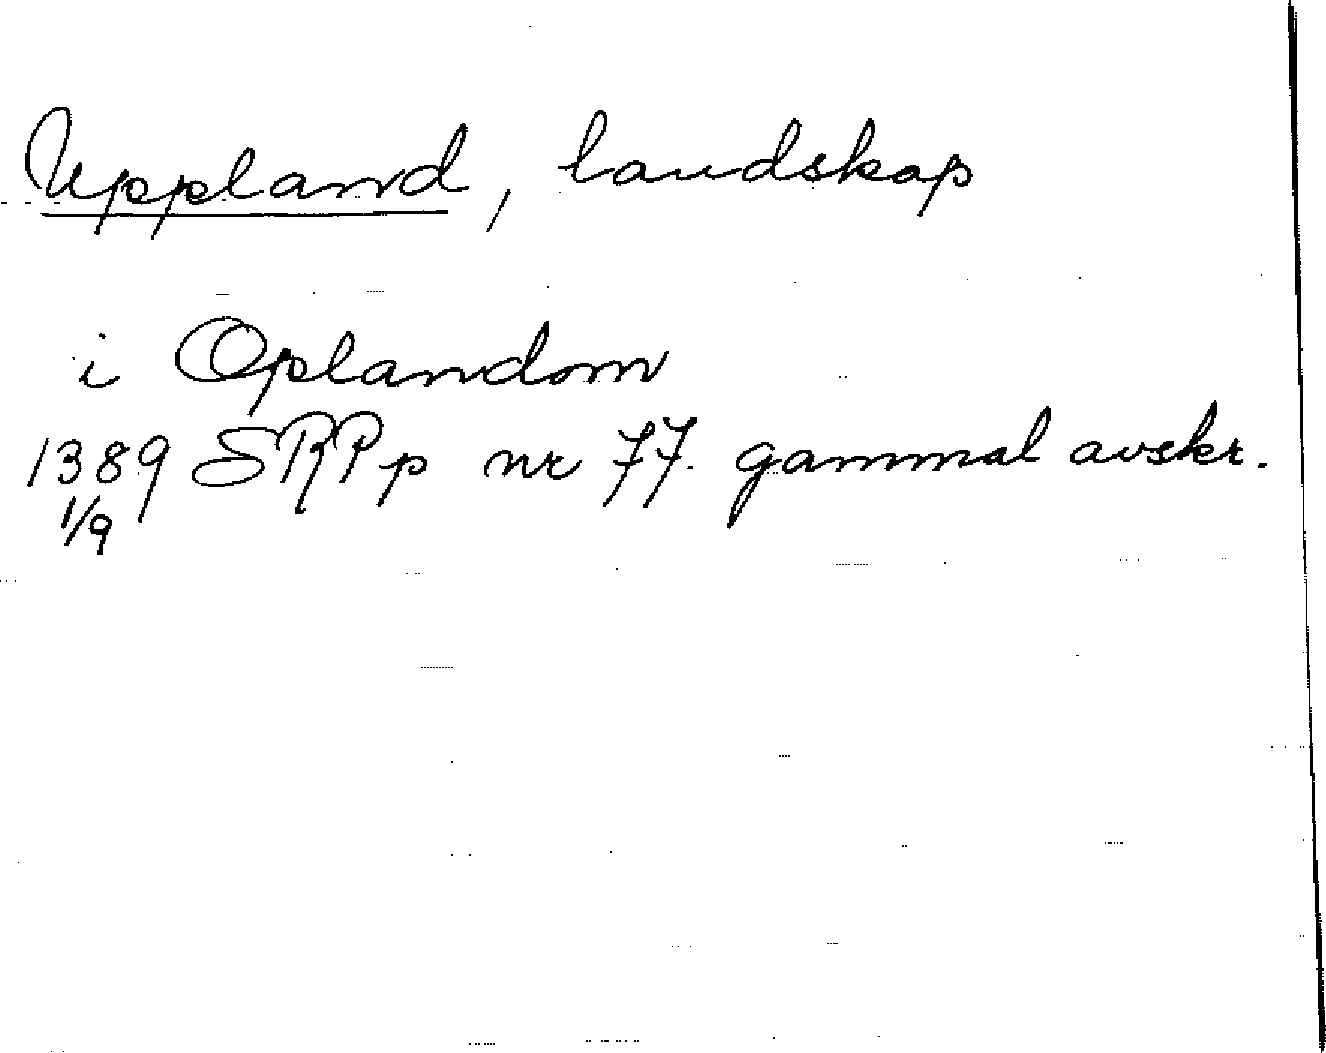 Uppland, landskap
i Oplandom
1389 SRPp nr 77. gammal avskr.
1/9